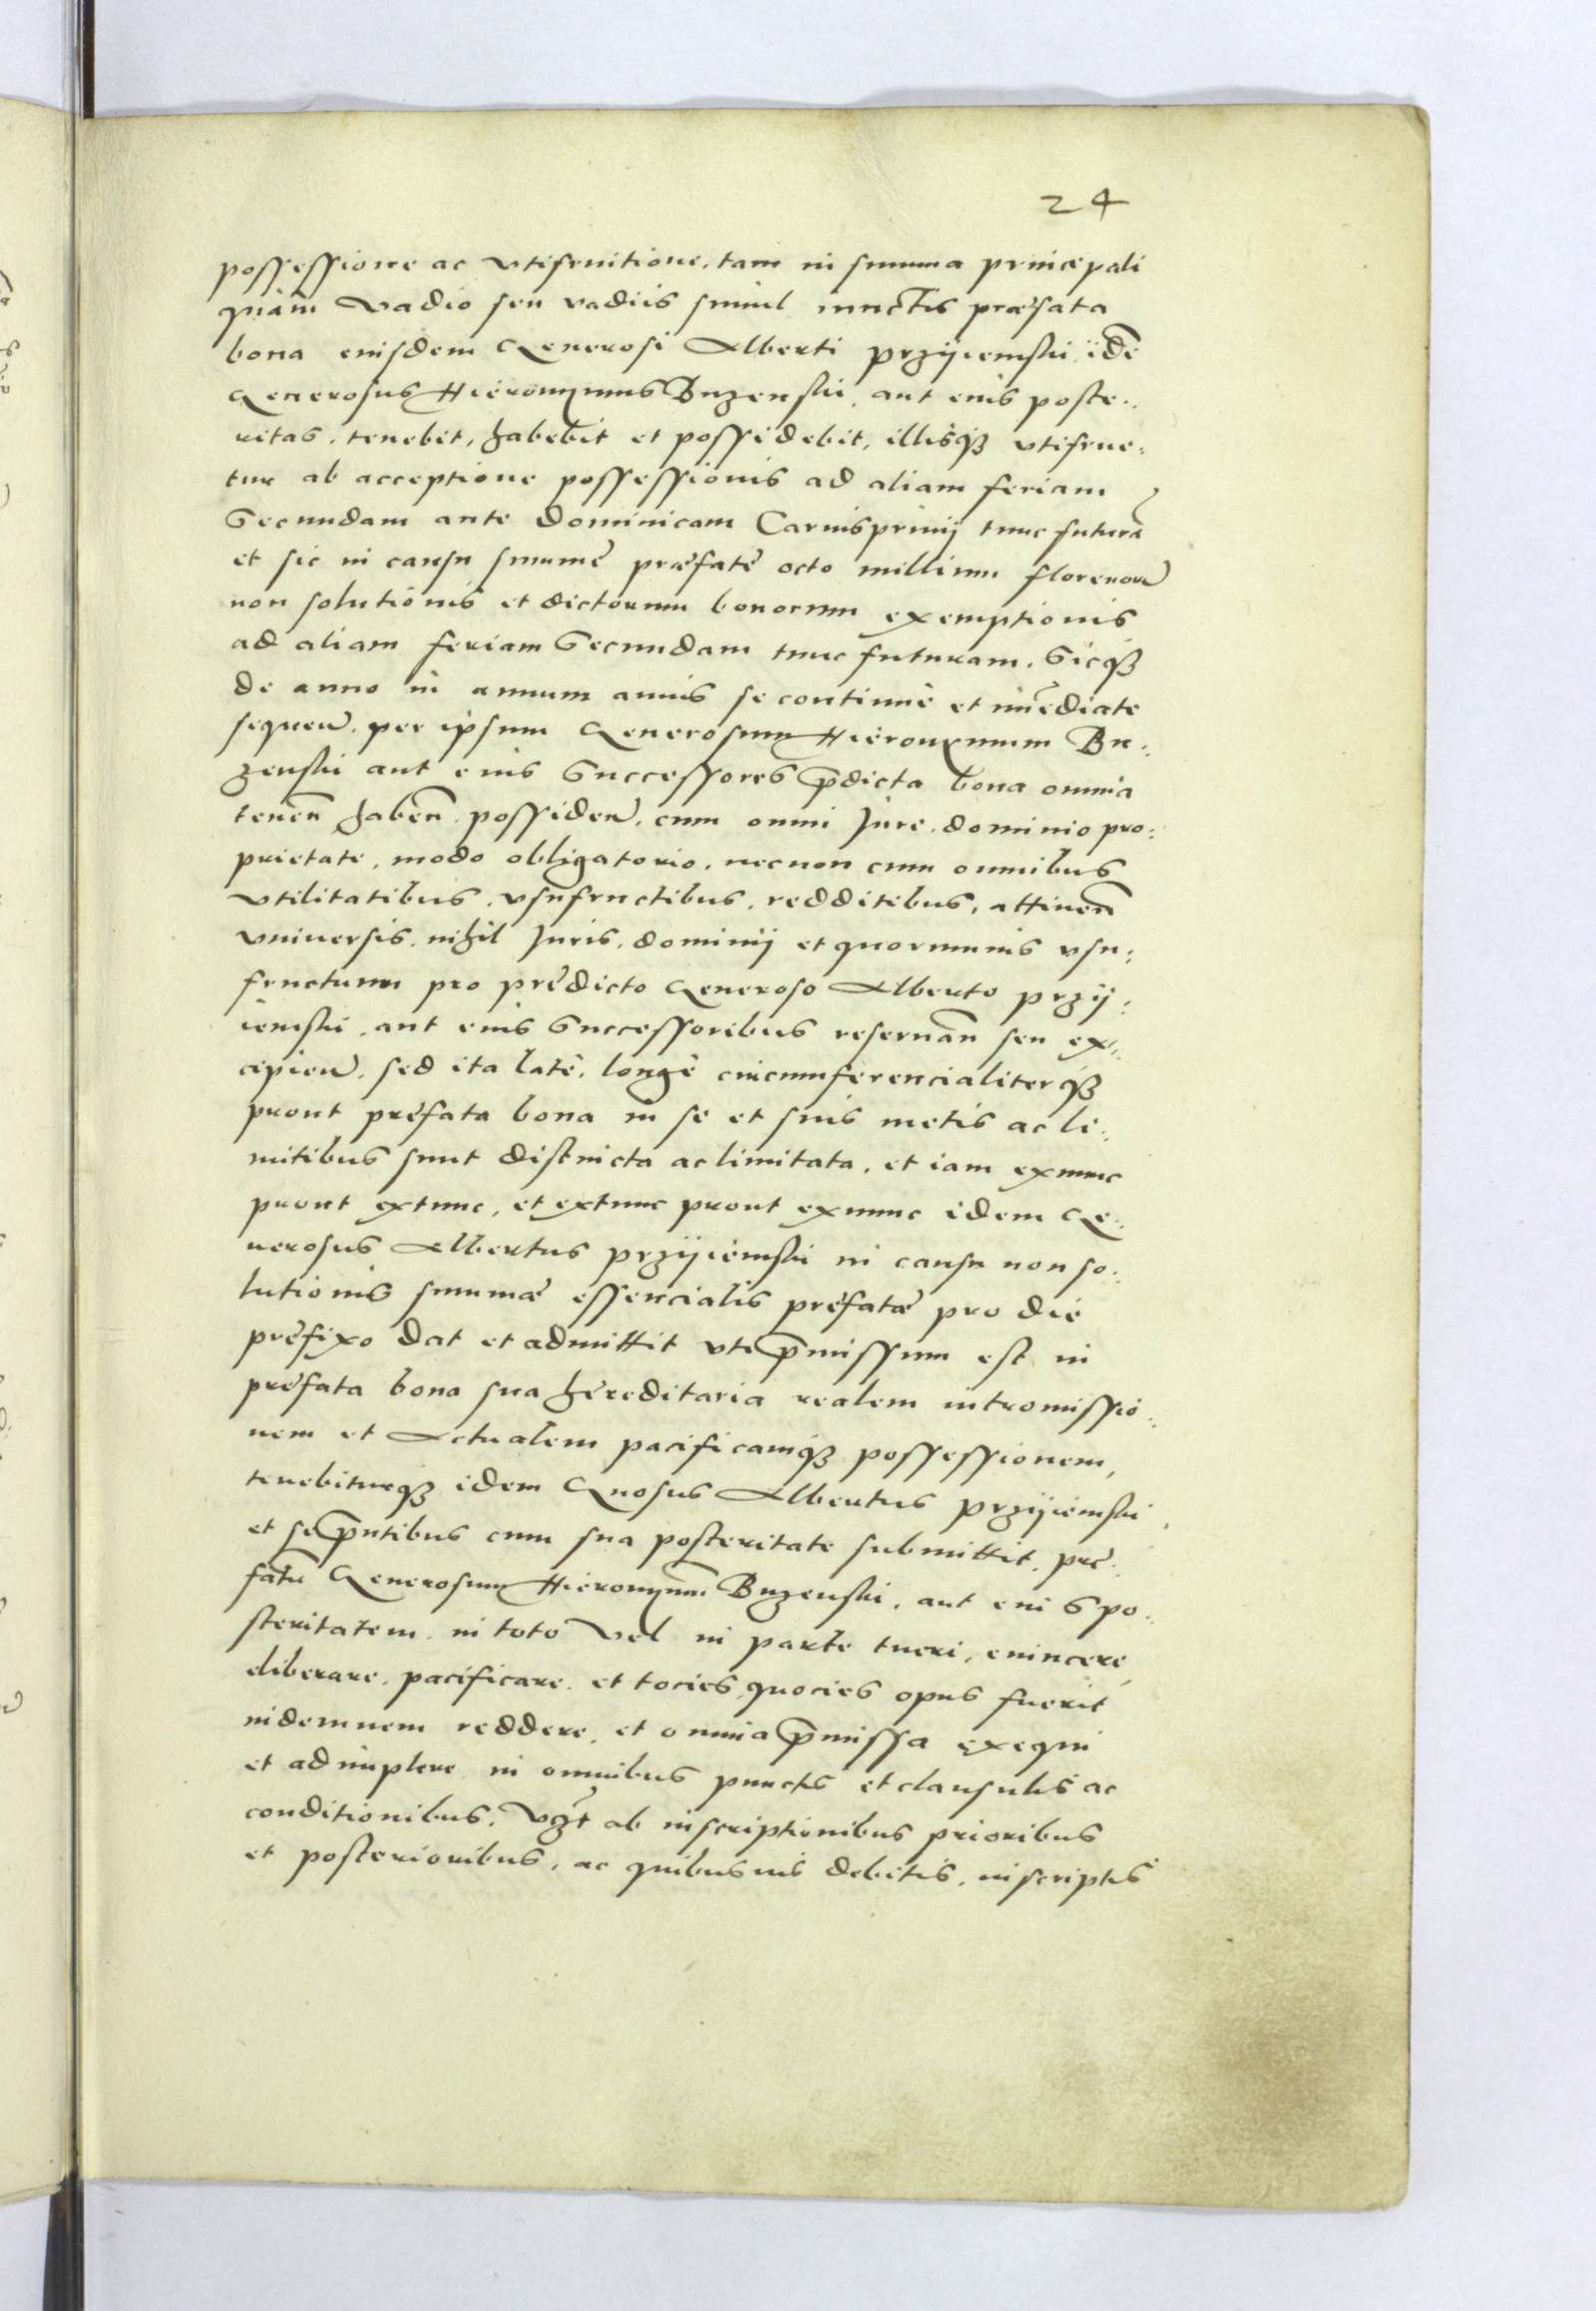 24
possessione ac vtifruitione, tam in summa principali
quàm vadio seu vadiis simul iunctis præfata
bona eiusdem Generosi Alberti Przijiemski idē
Generosus Hieronymus Buzenski, aut eius poste:
ritas, tenebit, habebit et possidebit, illisq3 vtifrue:
tur ab acceptione possessionis ad aliam feriam
Secundam ante Dominicam Carnisprivij tunc futurā
et sic in casu summę præfatę octo millium florenorū
non solutionis et dictorum bonorum exemptionis
ad aliam feriam Secundam tunc futuram, Sicq3
de anno in annum annis se continuè et imēdiate
sequeñ, per ipsum Generosum Hieronymum Bu:
zenski aut eius Successores p̄dicta bona omnia
teneñ habeñ possideñ, cum omni Jure, dominio pro:
prietate, modo obligatorio, necnon cum omnibus
vtilitatibus, vsufructibus, redditibus, attineñ
vniuersis, nihil Juris, dominij et quorumuis vsu:
fructuum pro prędicto Generoso Alberto Przij:
iemski, aut eius Successoribus reseruañ seu ex:
cipieñ, sed ita latè, longè circumferencialiterq3
prout pręfata bona in se et suis metis ac li:
mitibus sunt distincta ac limitata, et iam exnunc
prout extunc, et extunc prout exnunc idem Ge:
nerosus Albertus Przijiemski in casu non so:
lutionis summæ essencialis pręfatæ pro die
pręfixo dat et admittit vti p̄missum est in
pręfata bona sua hęreditaria realem intromissio:
nem et Actualem pacificamq3 possessionem,
tenebiturq3 idem Gnosus Albertus Przijiemski,
et se p̄ntibus cum sua posteritate submittit, prę:
fatū Generosum Hieronymū Buzenski, aut eius po:
steritatem, in toto vel in parte tueri, euincere,
eliberare, pacificare, et tocies quocies opus fuerit
indemnem reddere, et omnia p̄missa exequi
et adimplere in omnibus punctis et clausulis ac
conditionibus, vz̄t ab inscriptionibus prioribus
et posterioribus, ac quibusuis debitis, inscriptis